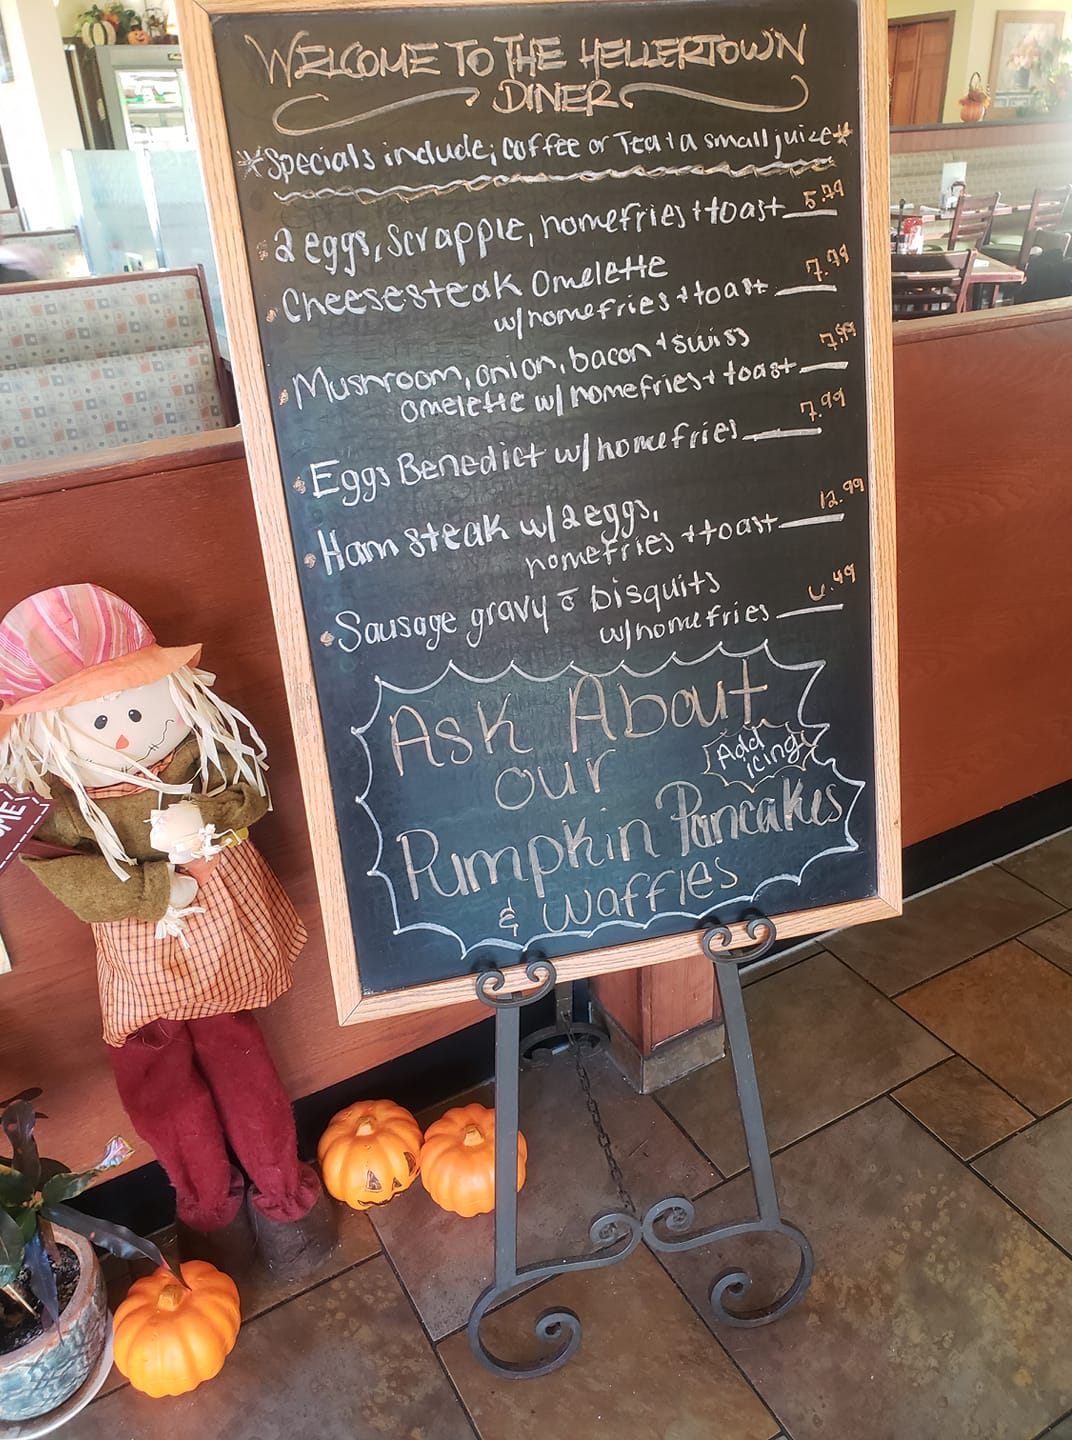 WELCOME TO THE HELLERTOWN
DINER
*Specials include; coffee or Tea + a small juice*
2 eggs, scrapple, homefries + toast 5.99
Cheesesteak Omelette 7.99
w/homefries + toast
Mushroom, onion, bacon + swiss 7.99
omelette w/ homefries + toast
Eggs Benedict w/homefries 7.99
Ham steak w/ 2 eggs, 12.99
homefries + toast
Sausage gravy c̄ bisquits 6.49
w/homefries
Ask About
our
Add
icing
Pumpkin Pancakes
& waffles